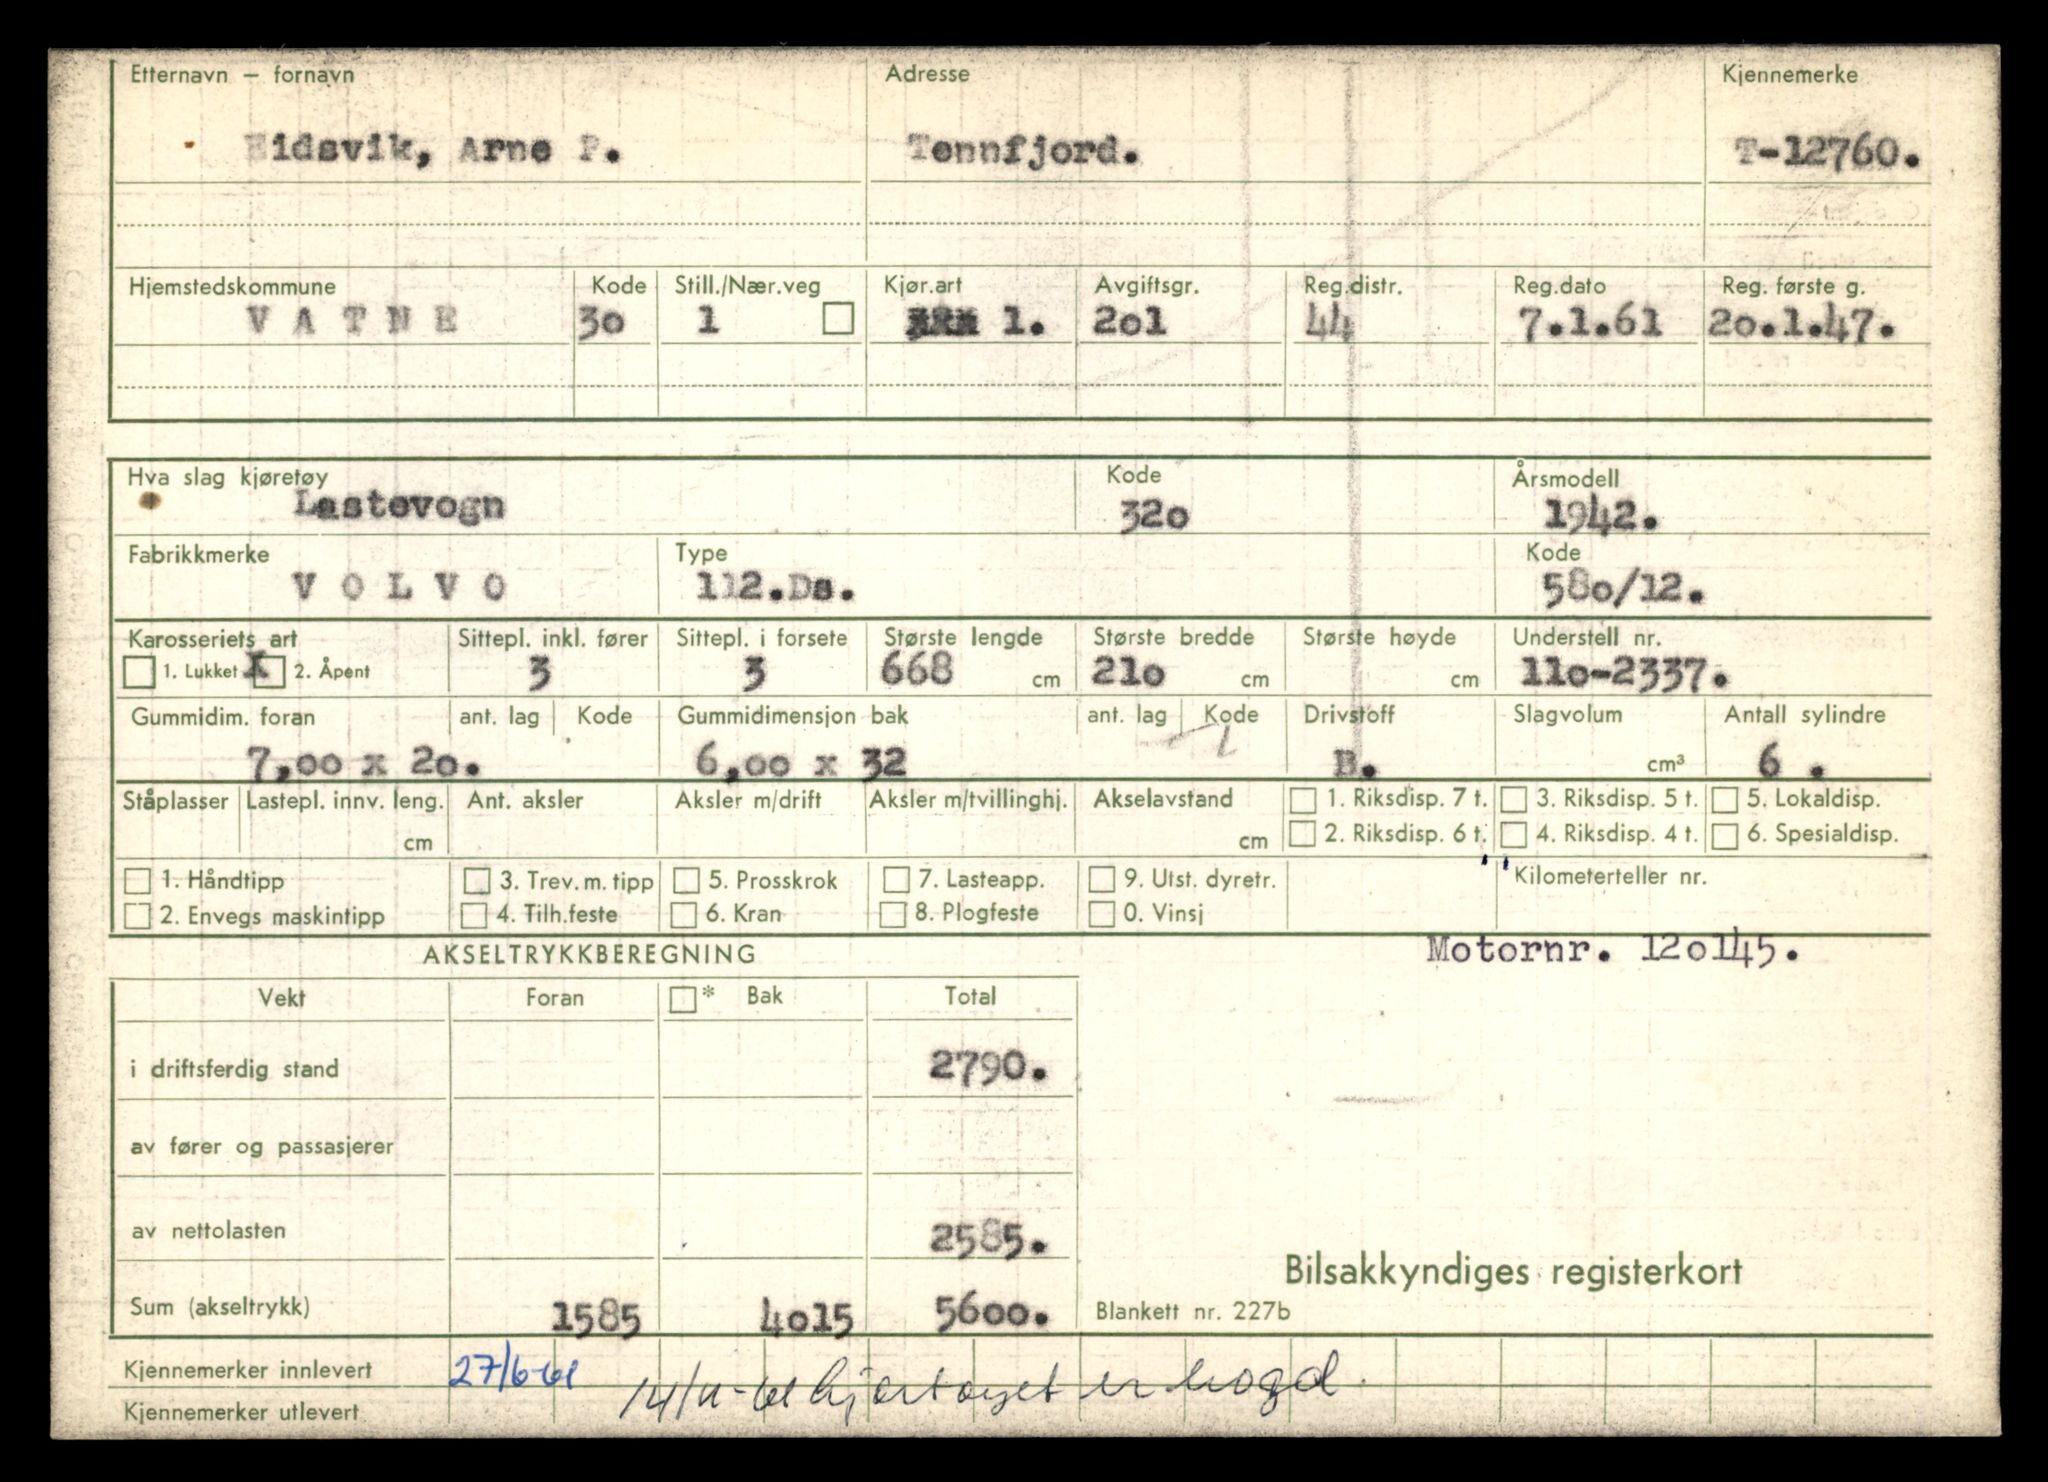 Etternavn – fornavn Adresse Kjennemerke
Eidsvik, Arne P. Tennfjord. T-12760.
Hjemstedskommune Kode Still./Nær.veg Kjør.art Avgiftsgr. Reg.distr. Reg.dato Reg. første g.
VATNE 30 1 1. 201 44 7.1.61 20.1.47.
Hva slag kjøretøy Kode Årsmodell
Lastevogn 320 1942.
Fabrikkmerke Type Kode
VOLVO 112.Ds. 580/12.
Karosseriets art Sittepl. inkl. fører Sittepl. i forsete Største lengde Største bredde Største høyde Understell nr.
1. Lukket X 2. Åpent 3 3 668 cm 210 cm cm 110-2337.
Gummidim. foran ant. lag Kode Gummidimensjon bak ant. lag Kode Drivstoff Slagvolum Antall sylindre
7,00 x 20. 6,00 x 32 B. cm³ 6 .
Ståplasser Lastepl. innv. leng. Ant. aksler Aksler m/drift Aksler m/tvillinghj. Akselavstand 1. Riksdisp. 7 t. 3. Riksdisp. 5 t. 5. Lokaldisp.
cm cm 2. Riksdisp. 6 t. 4. Riksdisp. 4 t. 6. Spesialdisp.
1. Håndtipp 3. Trev. m. tipp 5. Prosskrok 7. Lasteapp. 9. Utst. dyretr. Kilometerteller nr.
2. Envegs maskintipp 4. Tilh.feste 6. Kran 8. Plogfeste 0. Vinsj
AKSELTRYKKBEREGNING Motornr. 120145.
Vekt Foran * Bak Total
i driftsferdig stand 2790.
av fører og passasjerer
av nettolasten 2585.
Bilsakkyndiges registerkort
Sum (akseltrykk) 1585 4015 5600. Blankett nr. 227b
Kjennemerker innlevert 27/6-61 14/11-61 kjørtøyet er hogd.
Kjennemerker utlevert